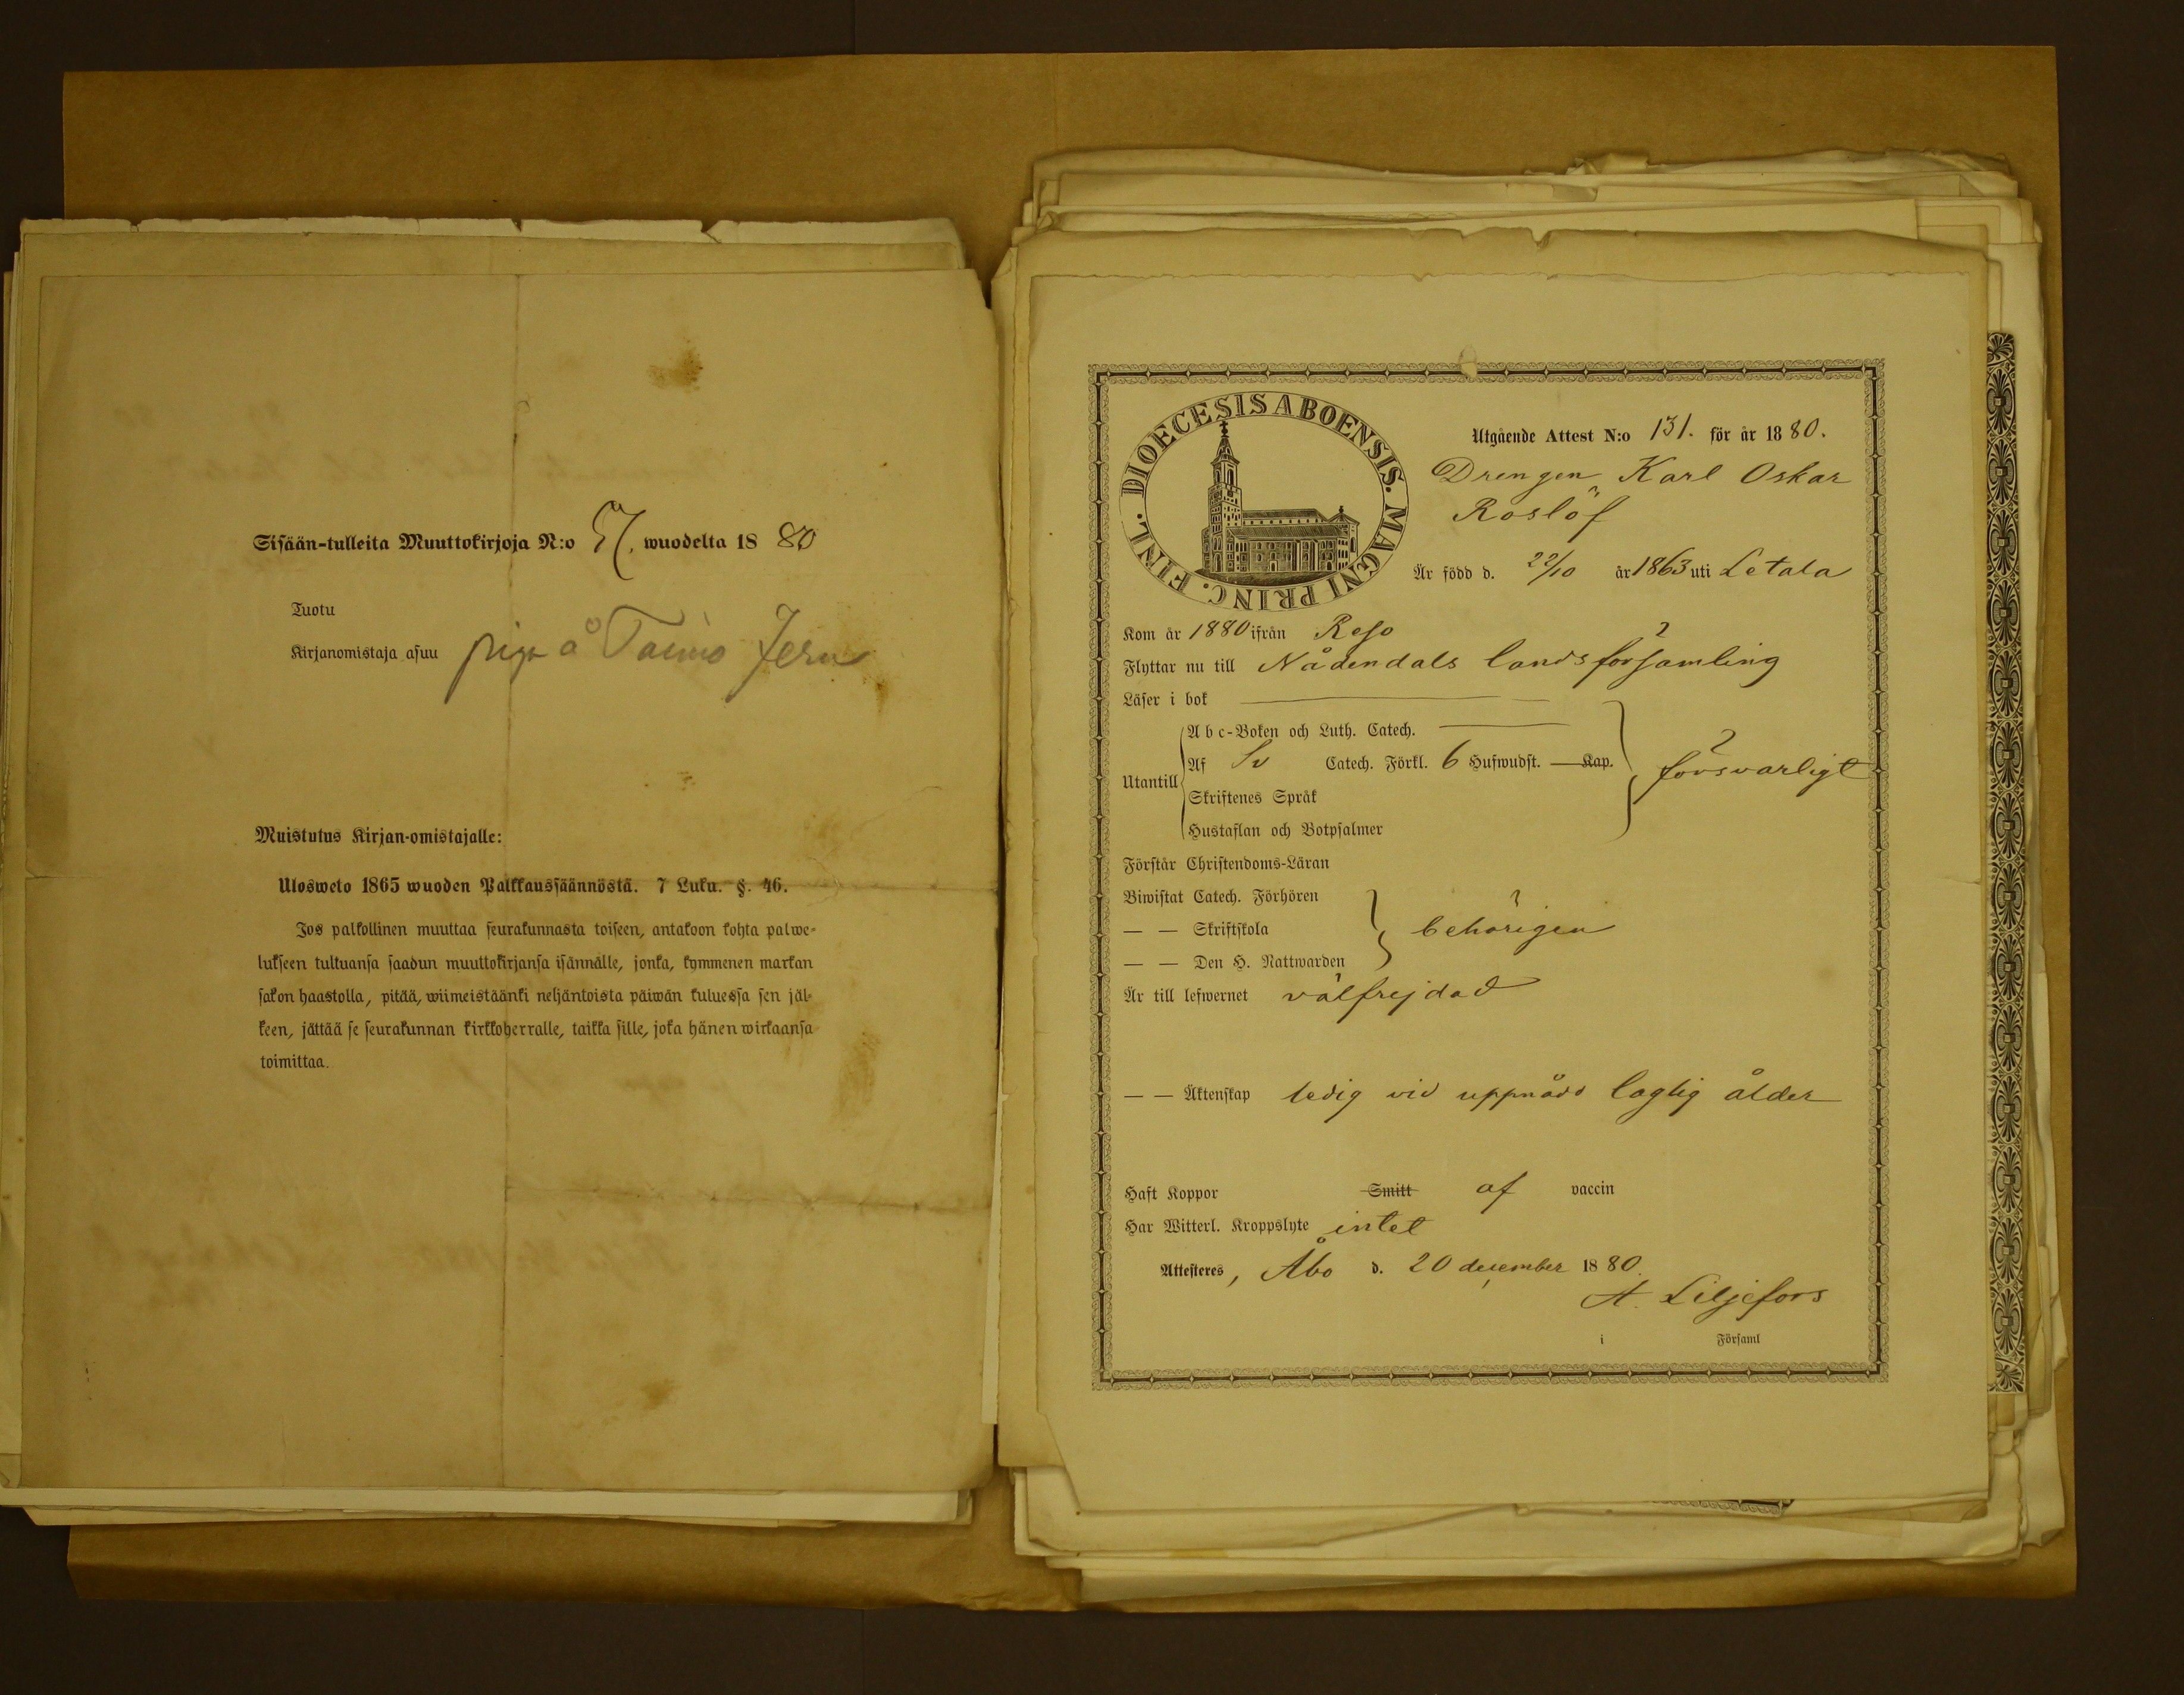 Sisään-tulleita Muuttokirjoja N:o 57. wuodelta 1880
Tuotu
Kirjanomistaja asuu piga å Taimo Jern
Muistutus Kirjan-omistajalle:
Ulosweto 1865 wuoden Palkkaussäännöstä. 7 Luku. §. 46.
Jos palkollinen muuttaa seurakunnasta toiseen, antakoon kohta palwe-
lukseen tultuansa saadun muuttokirjansa isännälle, jonka, kymmenen markan
sakon haastolla, pitää, wiimeistäänki neljäntoista päiwän kuluessa sen jäl-
keen, jättää se seurakunnan kirkkoherralle, taikka sille, joka hänen wirkaansa
toimittaa.
DIOECESIS ABOENSIS. MAGNI PRINC. FINL.
Utgående Attest N:o 131. för år 1880.
Drengen Karl Oskar
Roslöf
Är född d. 22/10 år 1863 uti Letala
Kom år 1880 ifrån Reso
Flyttar nu till Nådendals landsförsamling
Läser i bok
Utantill
Abc-Boken och Luth. Catech.
Af Sv Catech. Förkl. 6 Hufwudst. Kap. försvarligt
Skriftenes Språk
Hustaflan och Botpsalmer
Förstår Christendoms-Läran
Biwistat Catech. Förhören
— — Skriftskola behörigen
— — Den H. Nattwarden
Är till lefwernet välfrejdad
— — Äktenskap ledig vid uppnådd laglig ålder
Haft Koppor Smitt af vaccin
Har Witterl. Kroppslyte intet
Attesteres, Åbo d. 20 december 1880.
A. Liljefors
i Församl